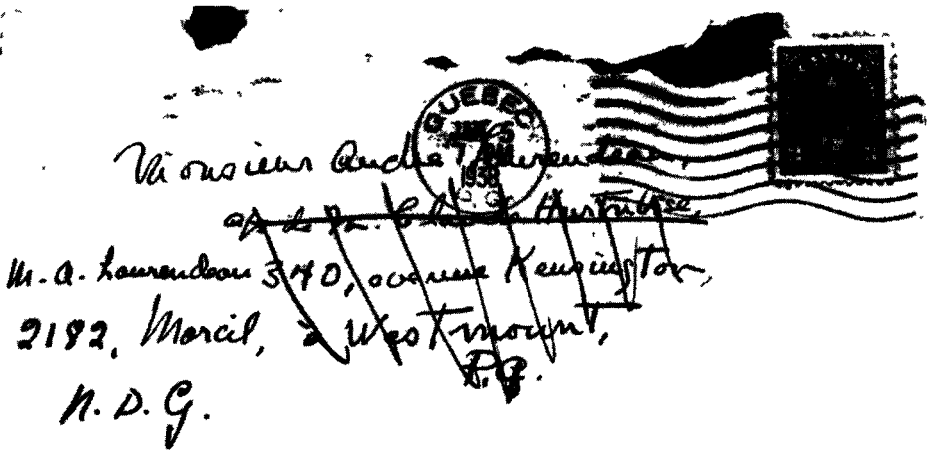 QUEBEC
1938
P.Q.
Monsieur André Laurendeau,
a/s de M. Claude Hurtubise,
340, avenue Kensington,
à Westmount,
P.Q.
M. A. Laurendeau
2182, Marcil,
N. D. G.